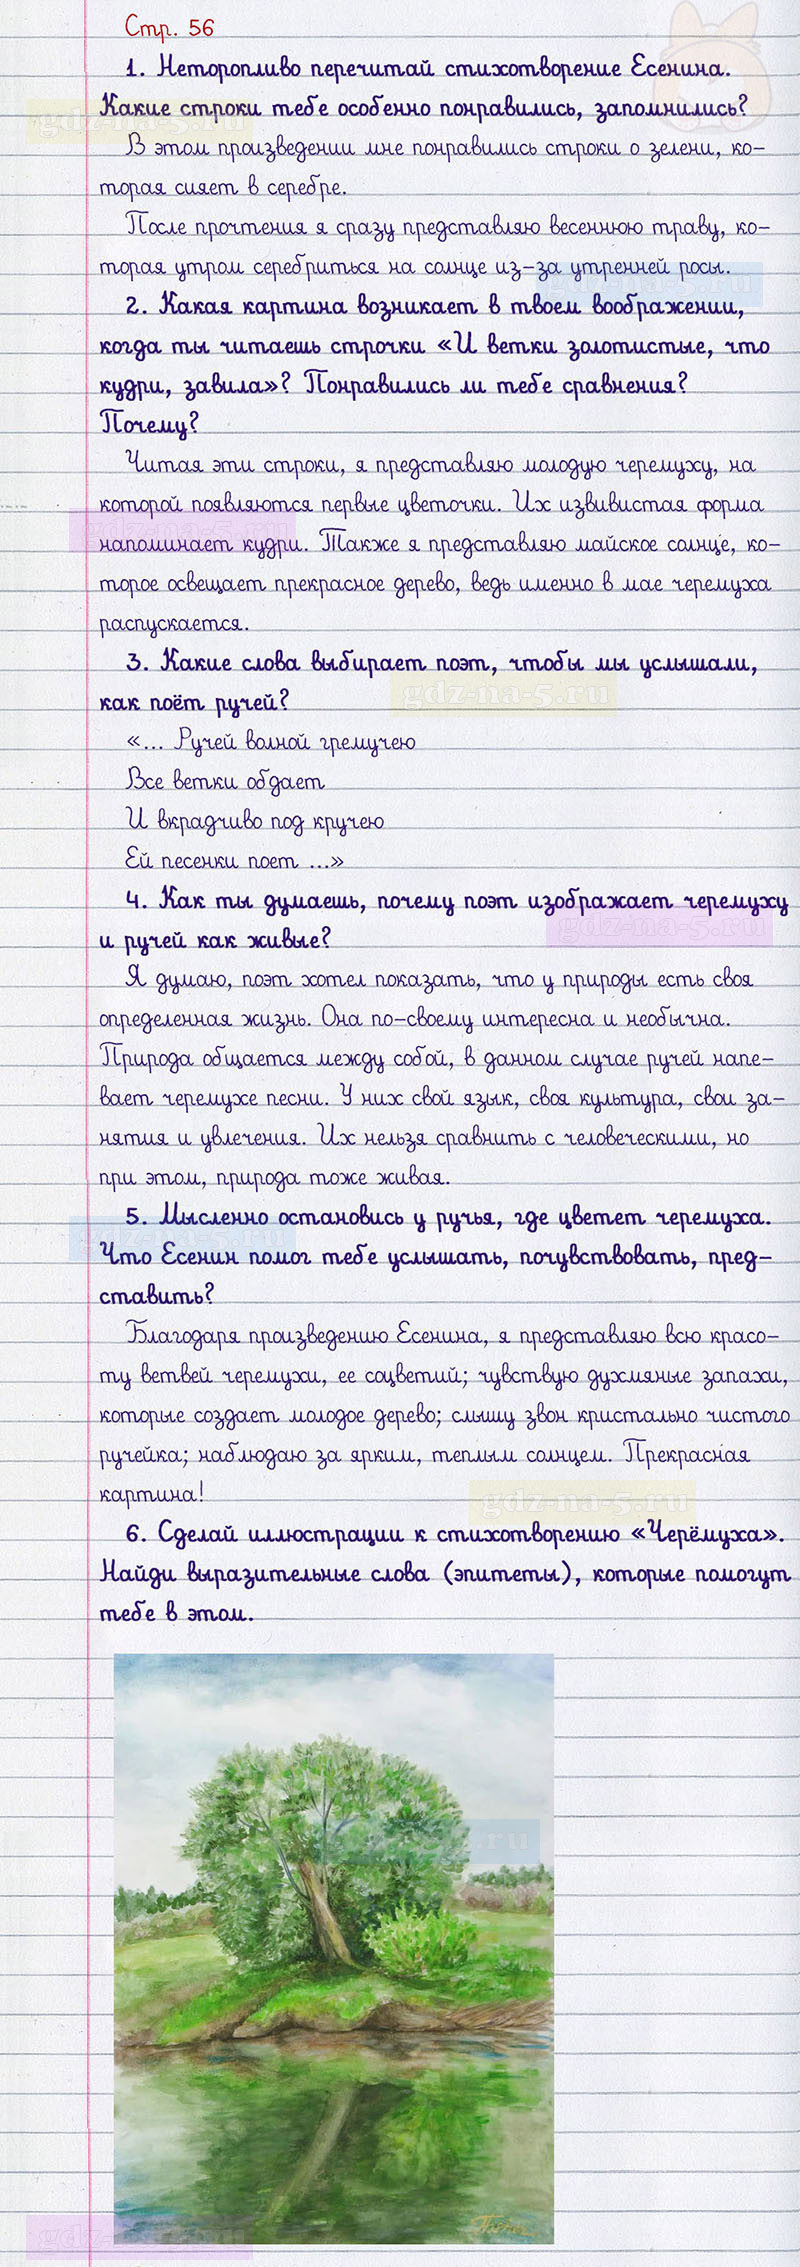 Стр. 56
1. Неторопливо перечитай стихотворение Есенина.
Какие строки тебе особенно понравились, запомнились?
gdz-na-5.ru
В этом произведении мне понравились строки о зелени, ко-
торая сияет в серебре.
После прочтения я сразу представляю весеннюю траву, ко-
торая утром серебриться на солнце из-за утренней росы.
gdz-na-5.ru
2. Какая картина возникает в твоем воображении,
когда ты читаешь строчки «И ветки золотистые, что
кудри, завила»? Понравились ли тебе сравнения?
Почему?
Читая эти строки, я представляю молодую черемуху, на
которой появляются первые цветочки. Их извивистая форма
gdz-na-5.ru
напоминает кудри. Также я представляю майское солнце, ко-
торое освещает прекрасное дерево, ведь именно в мае черемуха
распускается.
3. Какие слова выбирает поэт, чтобы мы услышали,
как поёт ручей?
gdz-na-5.ru
«... Ручей волной гремучею
Все ветки обдает
И вкрадчиво под кручею
Ей песенки поет ...»
4. Как ты думаешь, почему поэт изображает черемуху
и ручей как живые?
gdz-na-5.ru
Я думаю, поэт хотел показать, что у природы есть своя
определенная жизнь. Она по-своему интересна и необычна.
Природа общается между собой, в данном случае ручей напе-
вает черемухе песни. У них свой язык, своя культура, свои за-
нятия и увлечения. Их нельзя сравнить с человеческими, но
при этом, природа тоже живая.
5. Мысленно остановись у ручья, где цветет черемуха.
gdz-na-5.ru
Что Есенин помог тебе услышать, почувствовать, пред-
ставить?
Благодаря произведению Есенина, я представляю всю красо-
ту ветвей черемухи, ее соцветий; чувствую духмяные запахи,
которые создает молодое дерево; слышу звон кристально чистого
ручейка; наблюдаю за ярким, теплым солнцем. Прекрасная
картина!
gdz-na-5.ru
6. Сделай иллюстрации к стихотворению «Черёмуха».
Найди выразительные слова (эпитеты), которые помогут
тебе в этом.
.ru
gdz-na-5.ru